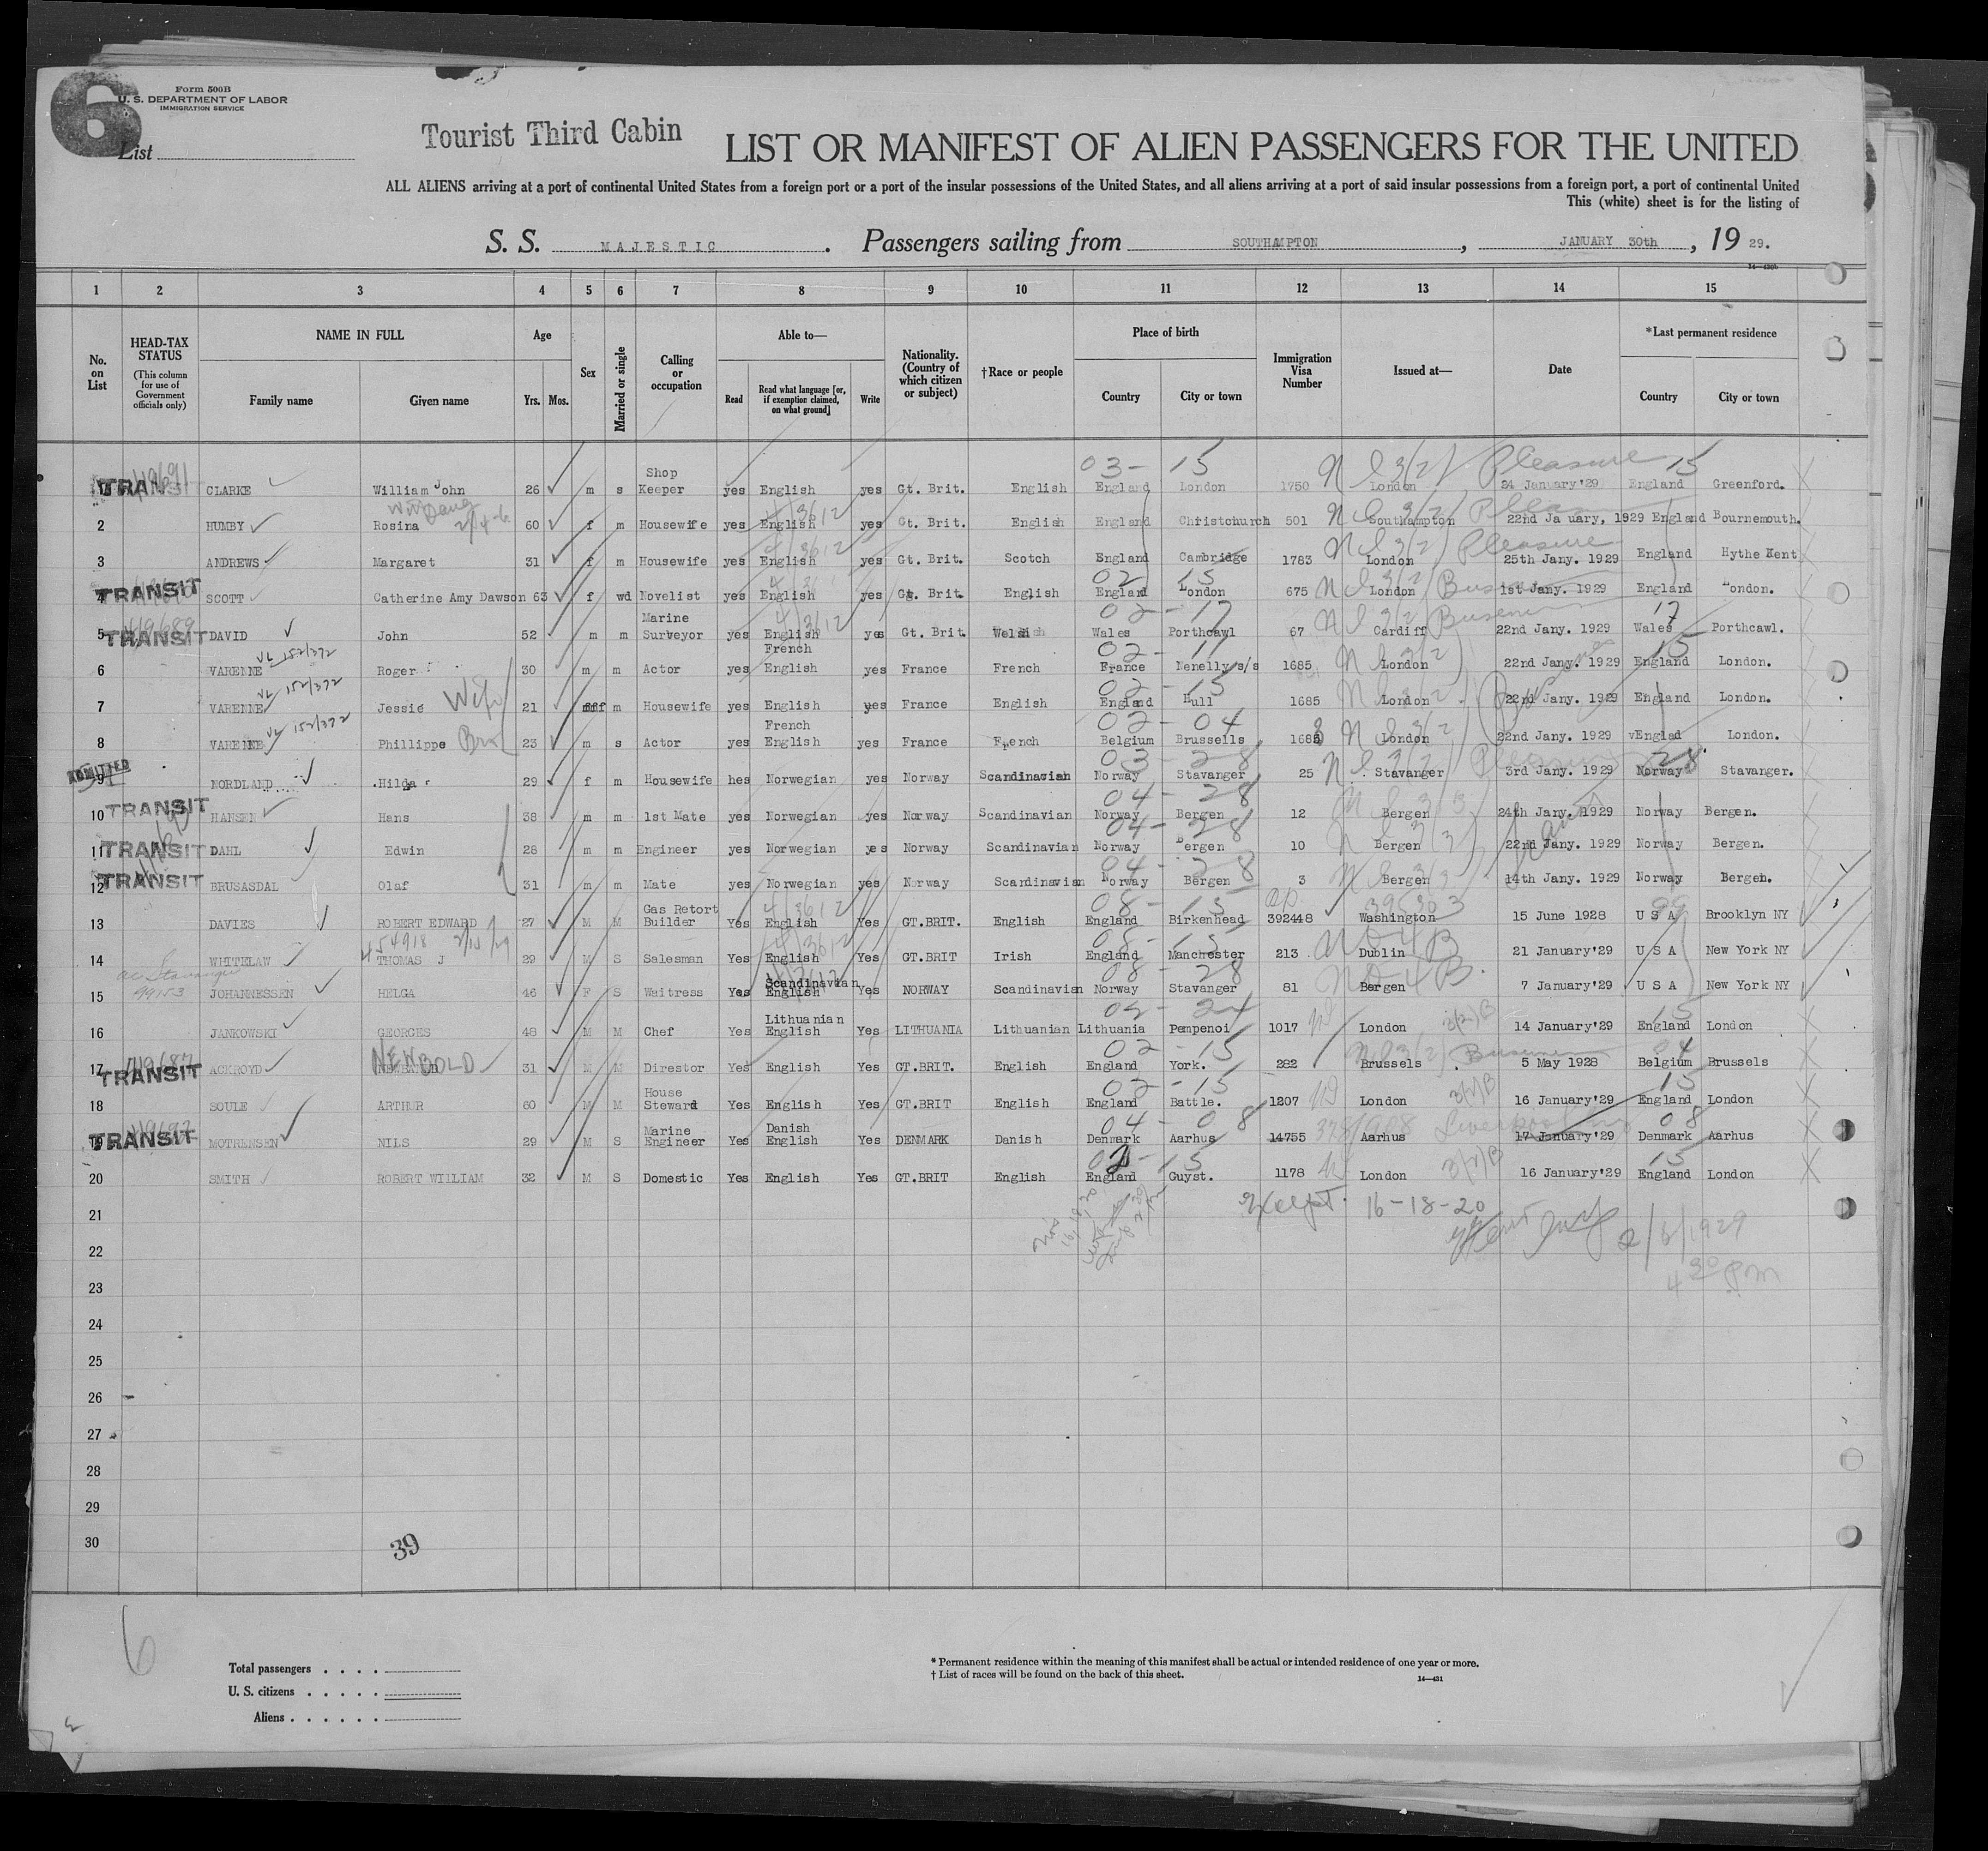 6
Form 500B
U. S. DEPARTMENT OF LABOR
IMMIGRATION SERVICE
List
Tourist Third Cabin
LIST OR MANIFEST OF ALIEN PASSENGERS FOR THE UNITED
ALL ALIENS arriving at a port of continental United States from a foreign port or a port of the insular possessions of the United States, and all aliens arriving at a port of said insular possessions from a foreign port, a port of continental United
This (white) sheet is for the listing of
S. S. MAJESTIC. Passengers sailing from SOUTHAMPTON, JANUARY 30th, 19 29.
1 2 3 4 5 6 7 8 9 10 11 12 13 14 15
No. on List
HEAD-TAX STATUS
(This column for use of Government officials only)
NAME IN FULL
Family name Given name
Age
Yrs. Mos.
Sex
Married or single
Calling or occupation
Able to—
Read
Read what language [or, if exemption claimed, on what ground]
Write
Nationality. (Country of which citizen or subject)
†Race or people
Place of birth
Country City or town
Immigration Visa Number
Issued at—
Date
*Last permanent residence
Country City or town
03 - 15 Pleasure 15
TRANSIT CLARKE William John 26 m s Shop Keeper yes English yes Gt. Brit. English England London 1750 London 24 January'29 England Greenford.
2 HUMBY Rosina 60 f m Housewife yes English yes Gt. Brit. English England Christchurch 501 Southampton 22nd Ja uary, 1929 England Bournemouth.
3 ANDREWS Margaret 31 f m Housewife yes English yes Gt. Brit. Scotch England Cambridge 1783 London 25th Jany. 1929 England Hythe Kent
Pleasure
02 15
TRANSIT 4 SCOTT Catherine Amy Dawson 63 f wd Novelist yes English yes Gt. Brit. English England London 675 London 1st Jany. 1929 England London.
02 - 17 17
TRANSIT 5 DAVID John 52 m m Marine Surveyor yes English yes Gt. Brit. Welsh Wales Porthcawl 67 Cardiff 22nd Jany. 1929 Wales Porthcawl.
02 - 11 15
6 VARENNE VL 152/372 Roger 30 m m Actor yes French English yes France French France Nenelly s/s 1685 London 22nd Jany. 1929 England London.
02 - 15
7 VARENNE VL 152/372 Jessie Wife 21 fff m Housewife yes English yes France English England Hull 1685 London 22nd Jany. 1929 England London.
02 - 04
8 VARENNE VL 152/372 Phillippe Bro 23 m s Actor yes French English yes France French Belgium Brussells 1685 London 22nd Jany. 1929 vEnglad London.
03 - 28 28
ADMITTED 9 NORDLAND Hilda 29 f m Housewife hes Norwegian yes Norway Scandinavian Norway Stavanger 25 Stavanger 3rd Jany. 1929 Norway Stavanger.
04 - 28
TRANSIT 10 HANSEN Hans 38 m m 1st Mate yes Norwegian yes Norway Scandinavian Norway Bergen 12 Bergen 24th Jany. 1929 Norway Bergen.
04 - 28
TRANSIT 11 DAHL Edwin 28 m m Engineer yes Norwegian yes Norway Scandinavian Norway Bergen 10 Bergen 22nd Jany. 1929 Norway Bergen.
04 - 28
TRANSIT 12 BRUSASDAL Olaf 31 m m Mate yes Norwegian yes Norway Scandinavian Norway Bergen 3 Bergen 14th Jany. 1929 Norway Bergen.
08 - 15 99
13 DAVIES ROBERT EDWARD 27 M M Gas Retort Builder Yes English Yes GT.BRIT. English England Birkenhead 392448 Washington 15 June 1928 U S A Brooklyn NY
08 - 15
14 WHITELAW THOMAS J 29 M S Salesman Yes English Yes GT.BRIT Irish England Manchester 213 Dublin 21 January'29 U S A New York NY
08 - 28
15 JOHANNESSEN HELGA 46 F S Waitress Yes Scandinavian English Yes NORWAY Scandinavian Norway Stavanger 81 Bergen 7 January'29 U S A New York NY
02 - 24 15
16 JANKOWSKI GEORGES 48 M M Chef Yes Lithuanian English Yes LITHUANIA Lithuanian Lithuania Pempenoi 1017 London 14 January'29 England London
02 - 15 04
TRANSIT 17 ACKROYD NEWBOLD 31 M M Direstor Yes English Yes GT.BRIT. English England York. 282 Brussels 5 May 1928 Belgium Brussels
02 - 15 15
18 SOULE ARTHUR 60 M M House Steward Yes English Yes GT.BRIT English England Battle. 1207 London 16 January'29 England London
04 - 08 08
TRANSIT 19 MOTRENSEN NILS 29 M S Marine Engineer Yes Danish English Yes DENMARK Danish Denmark Aarhus 14755 Aarhus 17 January'29 Denmark Aarhus
02 - 15 15
20 SMITH ROBERT WILLIAM 32 M S Domestic Yes English Yes GT.BRIT English England Guyst. 1178 London 16 January'29 England London
21 Except 16-18-20
22 2/6/1929
23 4 30 pm
24
25
26
27
28
29
30
39
6
Total passengers
U. S. citizens
Aliens
* Permanent residence within the meaning of this manifest shall be actual or intended residence of one year or more.
† List of races will be found on the back of this sheet.
14—431